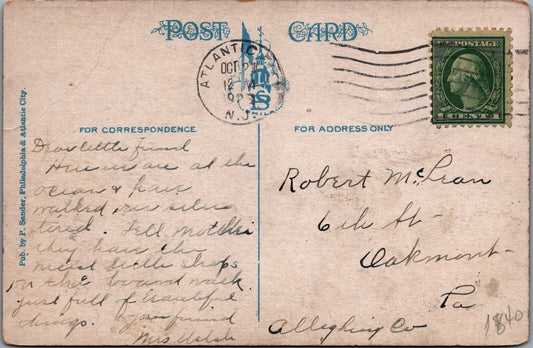 POST CARD
ATLANTIC
OCT
12 M
N.J.
POSTAGE
1 CENTS
PS
FOR CORRESPONDENCE
FOR ADDRESS ONLY
Pub. by P. Sander, Philadelphia & Atlantic City.
Dear little friend
Here we are at the
ocean & have
walked our selves
tired. Tell Mother
they have the
nicest little shops
on the board walk
just full of beautiful
things. Your friend
Mrs Walsh
Robert McLean
6th St-
Oakmont-
Pa
Allegheny Co
1840